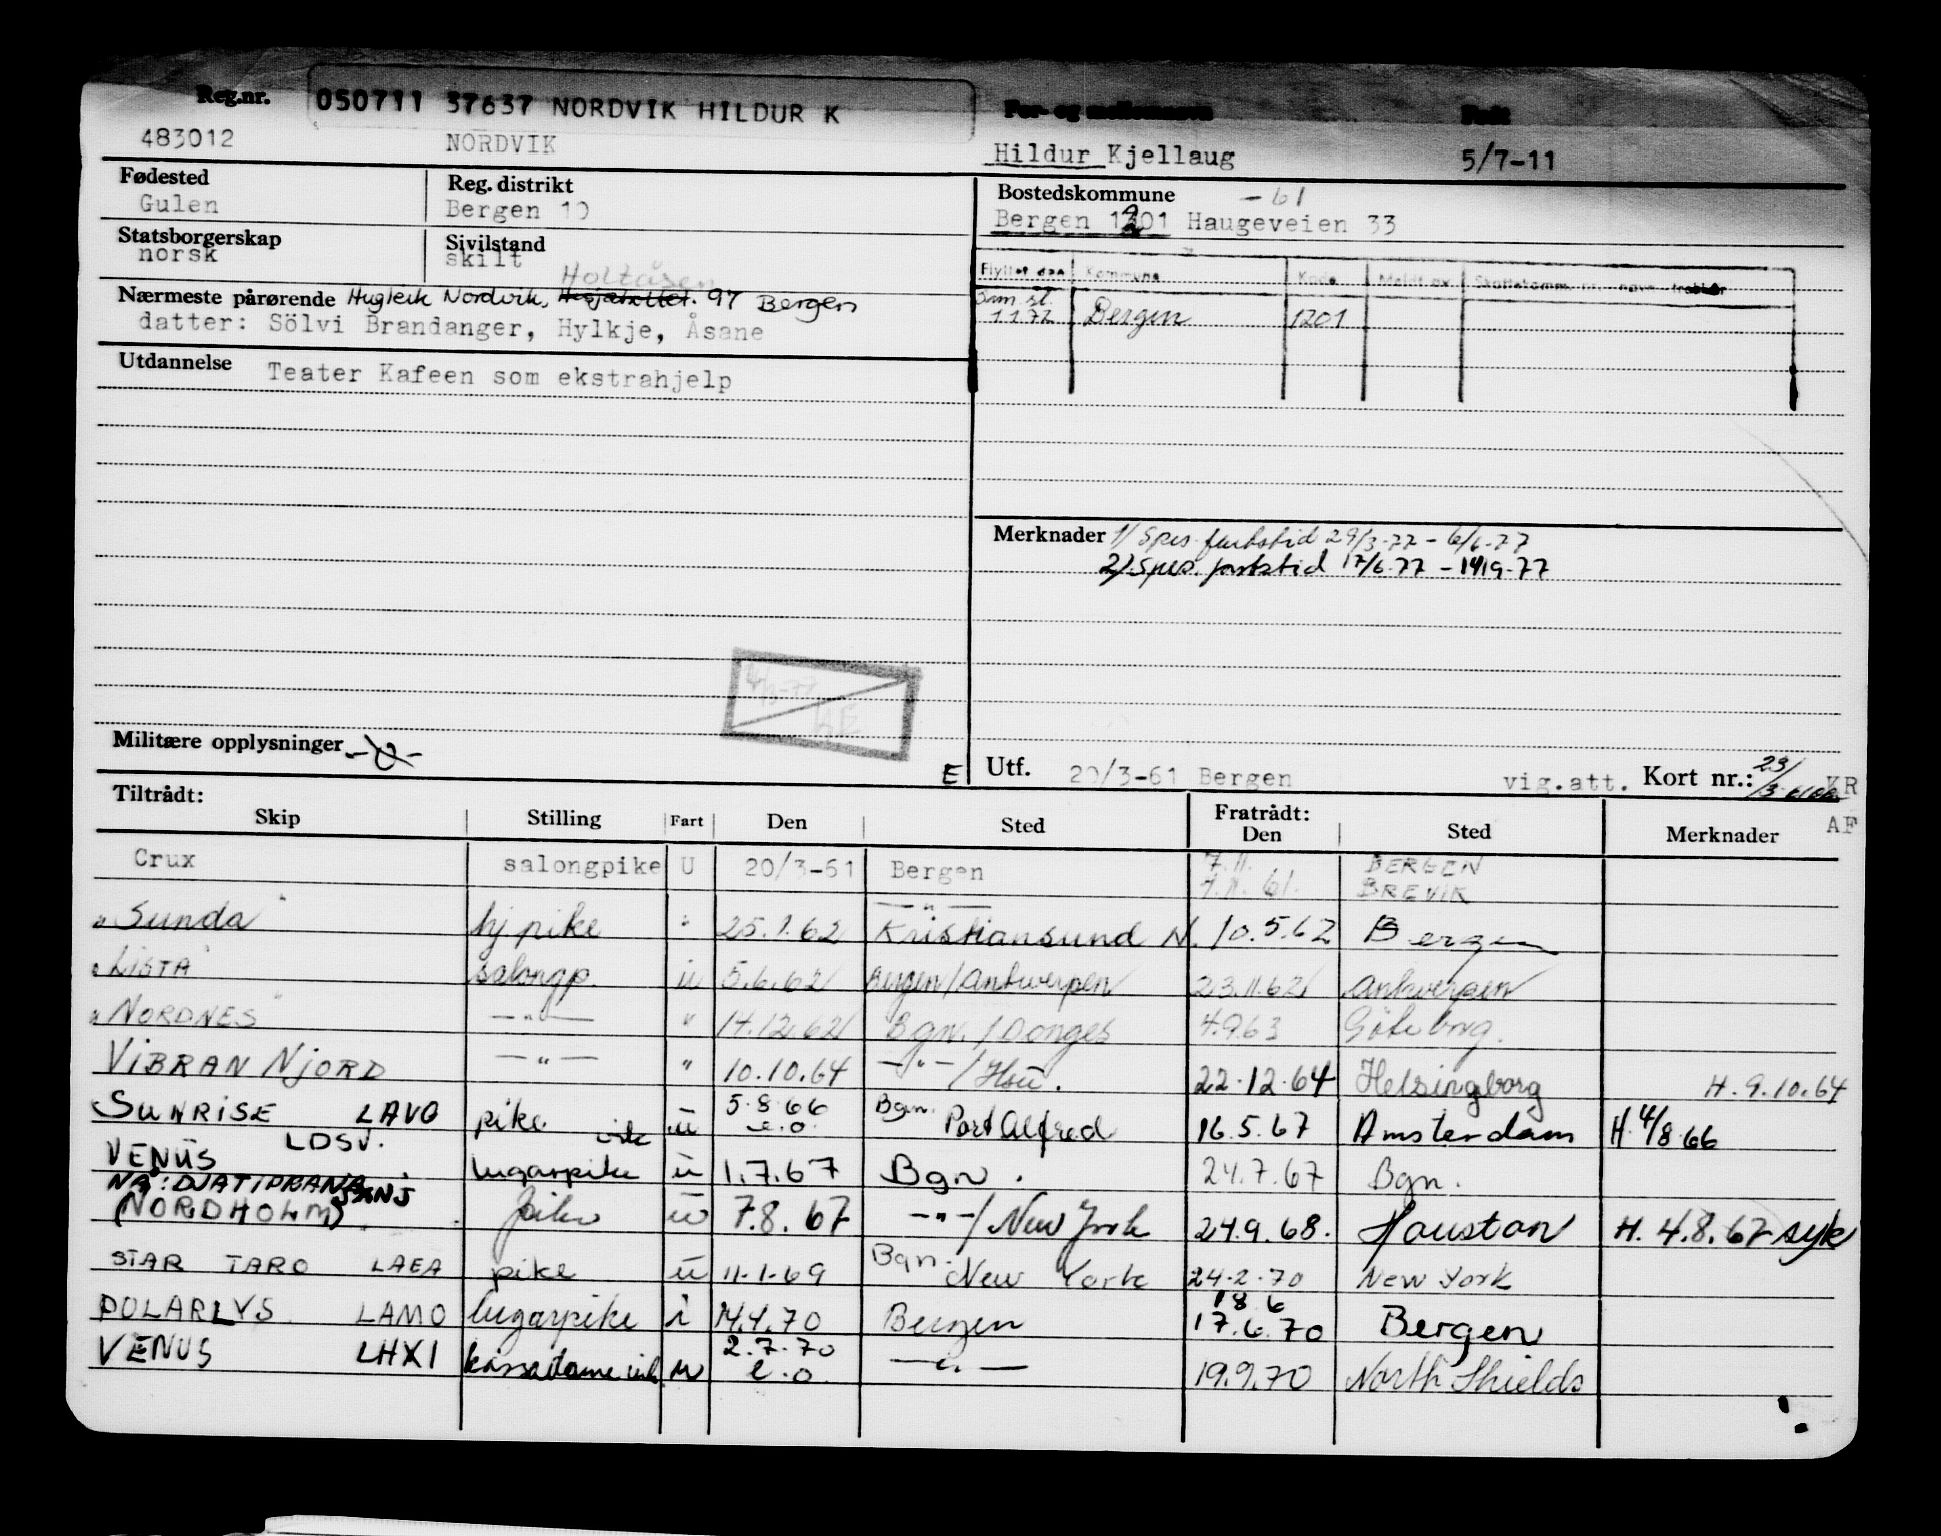 Reg.nr. 050711 37637 NORDVIK HILDUR K For- og mellomnavn Født
483012 NORDVIK Hildur Kjellaug 5/7-11
Fødested Reg. distrikt Bostedskommune -61
Gulen Bergen 10 Bergen 1301 Haugeveien 33
Statsborgerskap Sivilstand
norsk skilt
Flyttet den Kommune Kode Meldt av
Holtåsen
Nærmeste pårørende Hugleik Nordvik, 97 Bergen
datter: Sölvi Brandanger, Hylkje, Åsane
1.1.72 Bergen 1201
Utdannelse Teater Kafeen som ekstrahjelp
Merknader 1/ Spes. fartstid 29/3-77 - 6/6-77
2/. Spes. fartstid 17/6-77 - 14/9-77
Militære opplysninger
E Utf. 20/3-61 Bergen vig.att. Kort nr.: 23/ KR
AF
Tiltrådt: Fratrådt:
Skip Stilling Fart Den Sted Den Sted Merknader
Crux salongpike U 20/3-61 Bergen 7.11. BERGEN
7.11.61. BREVIK
"Sunda" hj pike " 25.1.62 Kristiansund N. 10.5.62 Bergen
"LISTA" salongp. u 5.6.62 Bergen/Antwerpen 23.11.62 Antwerpen
"NORDNES" —"— " 14.12.62 Bgn./Donges 4.9.63 Göteborg.
VIBRAN NJORD —"— " 10.10.64 —"—/ 22.12.64 Helsingborg H. 9.10.64
SUNRISE LAVO pike u 5.8.66 e.o. Bgn. Port Alfred 16.5.67 Amsterdam H. 4/8.66
VENUS LDSV. lugarpike vik u 1.7.67 Bgn. 24.7.67 Bgn.
NÅ: DJATIPRANA JXNJ
(NORDHOLM) pike u 7.8.67 —"—/New York 24.9.68. Houston H. 4.8.67 syk
STAR TARO LAEA pike u 11.1.69 Bgn. New York 24.2.70 New York
POLARLYS LAMO lugarpike i 14.4.70 Bergen 18 6 17.6.70 Bergen
VENUS LHXI kassadame vik u 2.7.70 e.o. —"— 19.9.70 North Shields